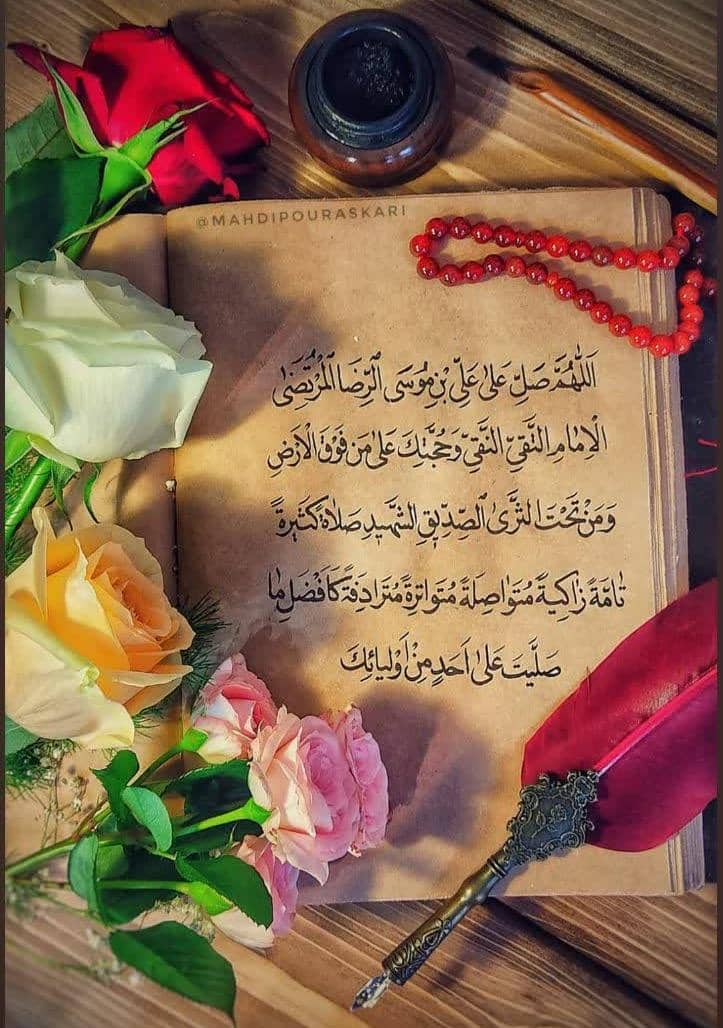 @MAHDIPOURASKARI
اَللّٰهُمَّ صَلِّ عَلىٰ عَلِيِّ بْنِ مُوسَى الرِّضَا الْمُرْتَضىٰ
الْاِمٰامِ التَّقِيِّ النَّقِيِّ وَحُجَّتِكَ عَلىٰ مَنْ فَوْقَ الْاَرْضِ
وَمَنْ تَحْتَ الثَّرىٰ الصِّدِّيقِ الشَّهِيدِ صَلاٰةً كَثِيرَةً
تٰامَّةً زٰاكِيَةً مُتَوٰاصِلَةً مُتَوٰاتِرَةً مُتَرٰادِفَةً كَاَفْضَلِ مٰا
صَلَّيْتَ عَلىٰ اَحَدٍ مِنْ اَوْلِيٰائِكَ